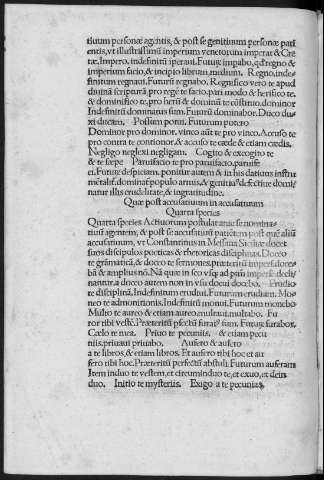 tiuum personæ agentis, & post se genitiuum personæ pati
entis, vt illustrissimū imperium venetorum imperat & Cre
tæ, Impero, indefinitū īperaui. Futurū īmpabo, qđ regno &
imperium facio, & incipio librum, medium. Regno, inde-
finitum regnaui, Futurū regnabo. Regnifico vero te apud
diuinā scripturā, pro regē te facio, pari modo & herifico te,
& dominifico te, pro herū & dominū te cōstituo, dominor
Indefinitū dominatus sum. Futurū dominabor. Duco du-
xi ducam. Possum potui, Futurum potero
Dominor pro dominor, vinco aūt te pro vinco. Accuso te
pro contra te contionor, & accuso te cædæ & etiam cædis.
Negligo neglexi negligam. Cogito & excogito te
& te sæpe Paruifacio te pro paruifacio, paruife
ci, Futurū despiciam, ponitur autem & in his datiuus instru
mētalis, dominat̃ populo armis, & genituus defectiue domi
natur illis crudelitate, & ingratitudine.
Quæ post accusatiuum in accusatiuum
Quarta species
Quarta species Actiuorum postulat ante se nomina-
tiuū agentem, & post se accusatiuū patiētem post quē aliū
accusatiuum, vt Constantinus in Messana Siciliæ docet
suos discipulos poeticas & rhetoricas disciplinas. Doceo
te grāmaticā, & doceo te sermones, præteritū imperf. doce-
bā & amplius nō. Nā quæ in eeo vsq; ad prīū imperf. decli
nantur, a doceo autem non in vsu docui docebo. Erudio
te disciplinā. Indefinitum erudiui. Futurum erudiam. Mo-
neo te admonitionis, Indefinitū monui. Futurum monebo
Multo te aureo & etiam aureo, multaui, multabo. Fu
ror tibi vestē. Præteritū pfectū furatus sum. Futurū furabor.
Cœlo te mea. Priuo te pecuniis, & etiam pecu
niis, priuaui priuabo. Aufero & aufero
a te libros, & etiam libros. Et aufero tibi hoc et au
fero tibi hoc. Præteritū perfectū abstuli. Futurum auferam
Item induo te vestem, et circumduo te, et exuo, et dein
duo. Initio te mysteriis. Exigo a te pecunias,